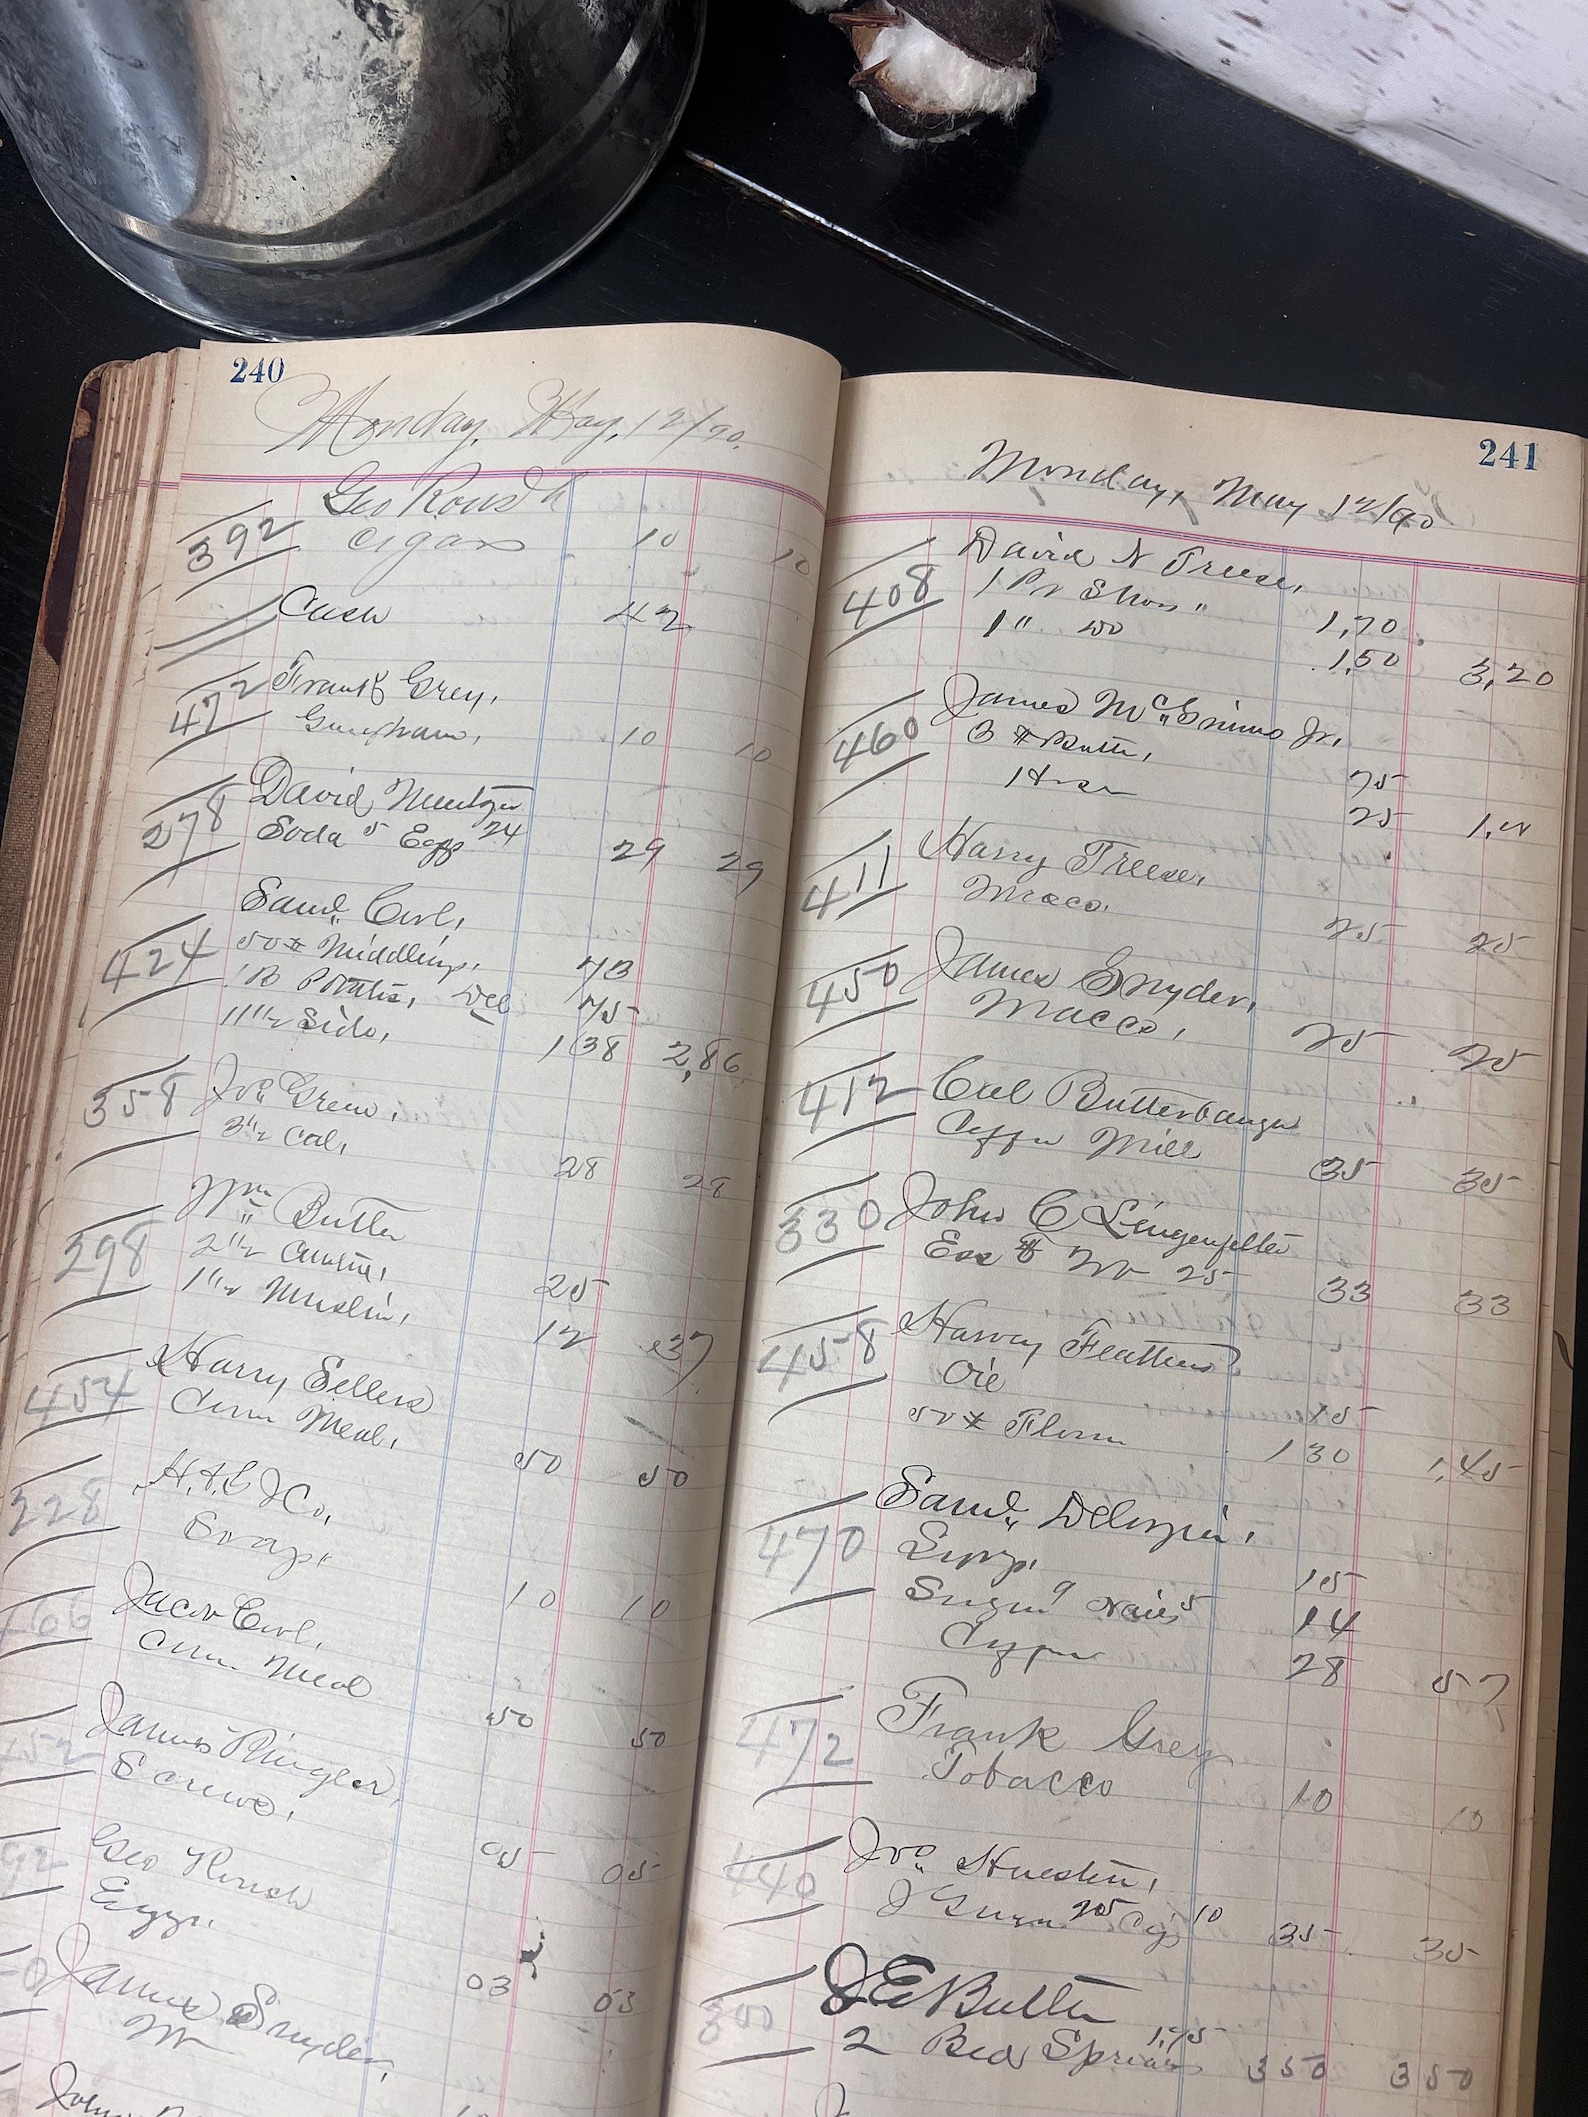 240
Monday, May, 12/90.
Geo Roush
392 Cigars 10 10
Cash 42
472 Frank Grey,
Gingham, 10 10
278 David
Soda 5 Eggs 24 29 29
Saml,
424 50# Middlings, 73
75
11 1/2 Side, 138 2,86
358 Jno
3 1/2 Cal, 28 28
Wm Butler
398 2 1/2 25
1 1/2 Muslin, 12 37
Harry Sellers
454 Corn Meal, 50 50
328 Co,
Soap, 10 10
466 Jacob
Corn Meal 50 50
James Ringler,
452 Screws, 05 05
92 Geo Roush
Eggs, 03 03
James Snyder,
241
Monday, May 12/90
David N Treese,
408 1 Pr Shoes "
1 " do 1,70
1,50 3,20
James McGinnis Jr,
460 3 # Butter,
75
25 1,00
411 Harry Treese,
Macco, 25 25
450 James Snyder,
Macco, 25 25
412 Butterbaugh
Coffee Mill 35 35
330 John C Lingenfelter
25 33 33
458 Harvey Feathers
Oil 15
50# Flour 130 1,45
Saml, Delozier,
470 Syrup, 15
Sugar 9 Nails 5 14
Coffee 28 57
472 Frank Grey
Tobacco 10 10
440 Jno
25 Cigs 10 35 35
J E Butler
300 2 Bed Springs 1,75 350 350